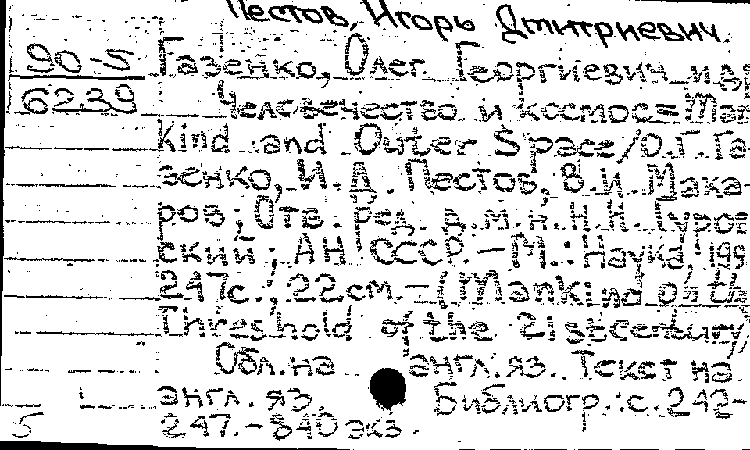 Пестов, Игорь Дмитриевич.
90-5 Газенко, Олег Георгиевич и др
6239 Человечество и космос = Man
kind and Outer Space / О.Г. Га
зенко, И.Д. Пестов, В.И. Мака
ров; Отв. ред. д.м.н. Н.Н. Гуров
ский; АН СССР. - М.: Наука, 199
247с.; 22см. - (Mankind on th
Threshold of the 21st century)
Обл. на англ. яз. Текст на
англ. яз. Библиогр.: с. 242-
5 247. - 840 экз.